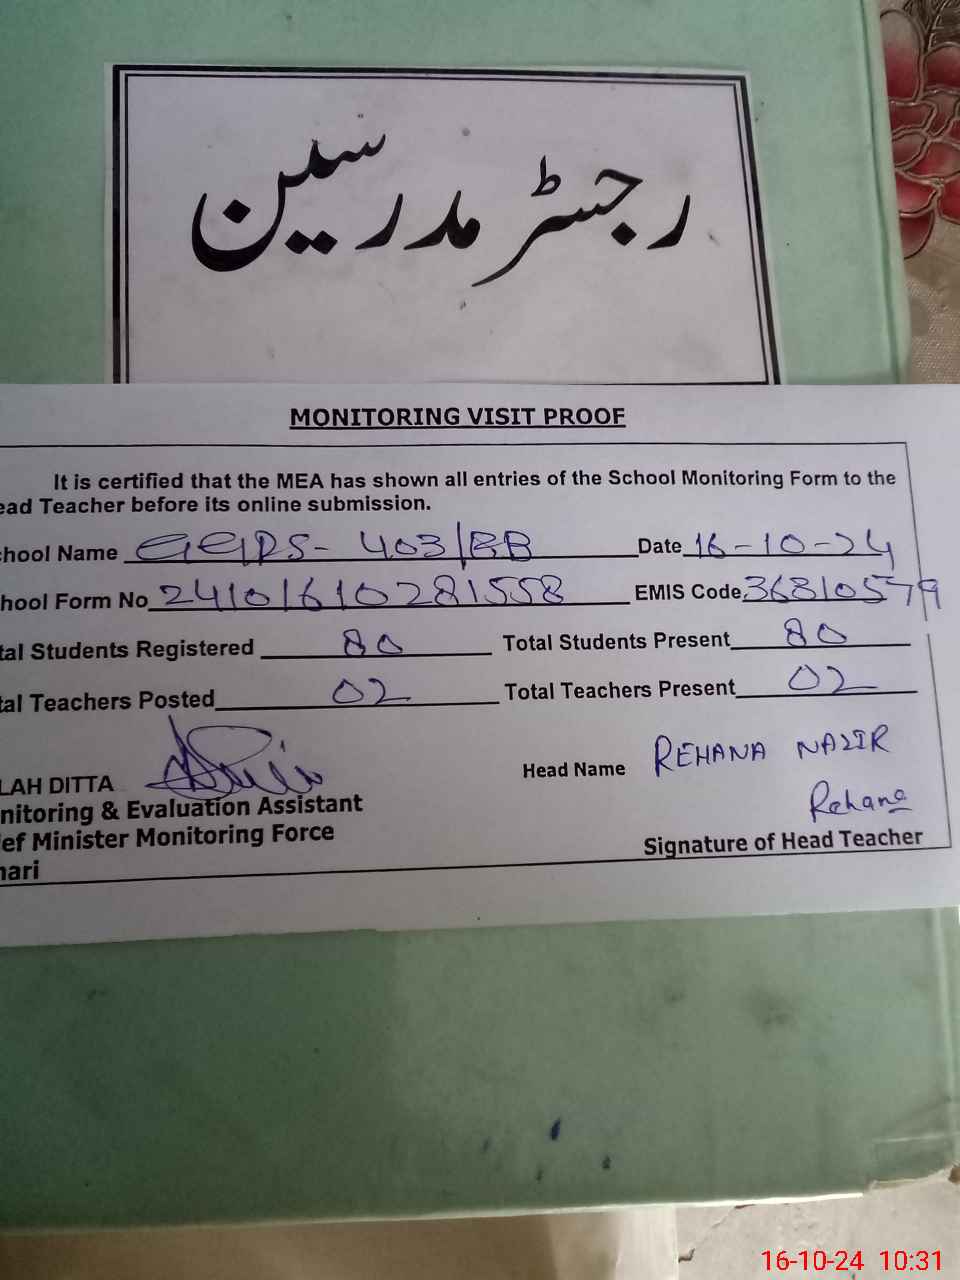 رجسٹر مدرسین
MONITORING VISIT PROOF
It is certified that the MEA has shown all entries of the School Monitoring Form to the
ead Teacher before its online submission.
chool Name GGPS- 403/BB Date 16-10-24
hool Form No 24101610281558 EMIS Code 36810579
tal Students Registered 80 Total Students Present 80
tal Teachers Posted 02 Total Teachers Present 02
LAH DITTA Head Name REHANA NAZIR
nitoring & Evaluation Assistant Rehana
ief Minister Monitoring Force Signature of Head Teacher
hari
16-10-24 10:31